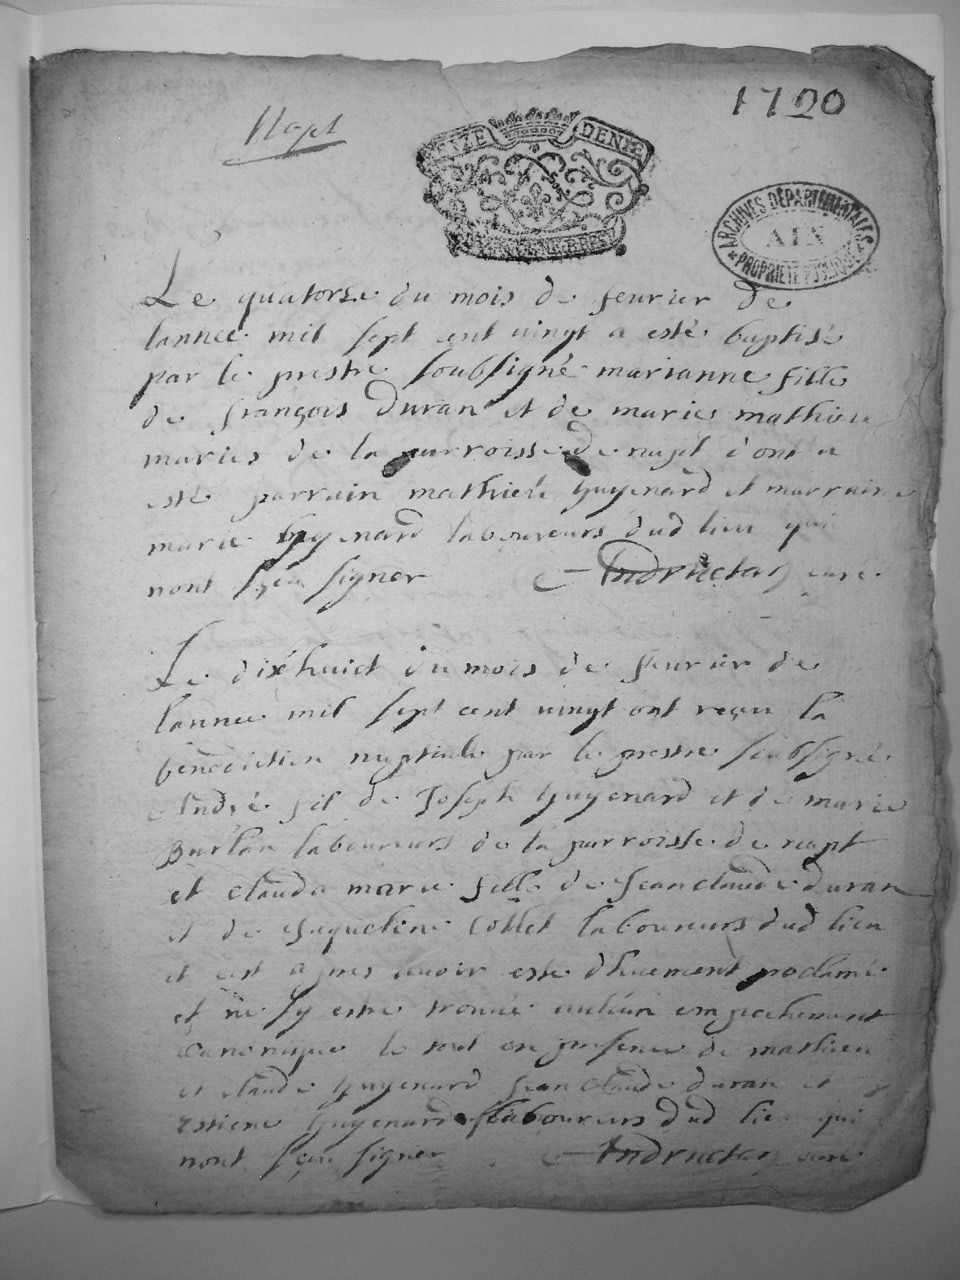 Napt
1720
SEIZE DENIE
ARCHIVES DÉPARTEMENTALES
AIN
PROPRIÉTÉ PUBLIQUE
Le quatorse du mois de feurier de
lannee mil sept cent uingt a esté baptisé
par le prestre soubsigné marianne fille
de françois Duran et de marie mathieu
maries de la parroisse de napt dont a
esté parrain mathieu Guyenard et marraine
marie Guyenard laboureurs dud lieu qui
nont sçeu signer Andructan cure
Le dixhuict du mois de feurier de
lannee mil sept cent uingt ont reçeu la
benediction nuptiale par le prestre soubsigné
André fil de Joseph Guyenard et de marie
Burlan laboureurs de la parroisse de napt
et clauda marie fille de Jean claude duran
et de Jaqueline Collet laboureurs dud lieu
et cest apres auoir esté dhuement proclamé
et ne sy estre trouué auceun empechement
Canonique le tout en presence de mathieu
et claude Guyenard Jean claude duran et
Estiene Guyenard laboureurs dud lieu qui
nont sçeu signer Andructan cure